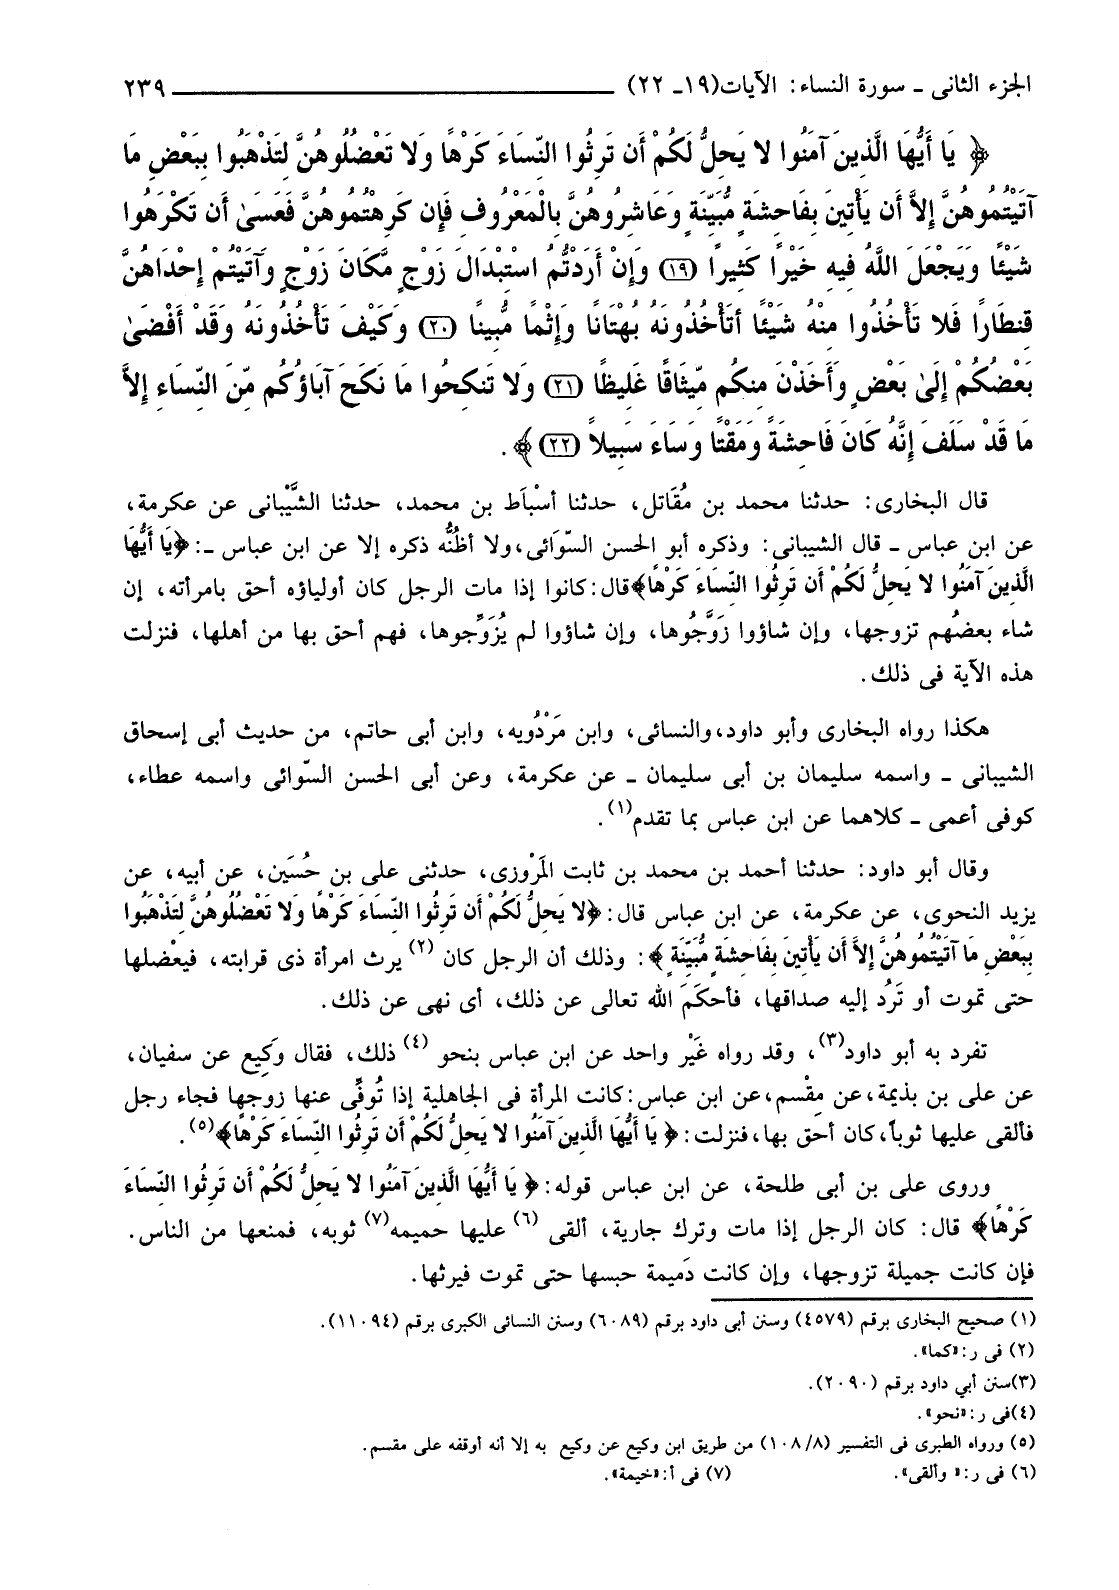 الجزء الثانى ـ سورة النساء: الآيات(١٩ـ ٢٢) ٢٣٩
﴿ يَا أَيُّهَا الَّذِينَ آمَنُوا لا يَحِلُّ لَكُمْ أَن تَرِثُوا النِّسَاءَ كَرْهًا وَلا تَعْضُلُوهُنَّ لِتَذْهَبُوا بِبَعْضِ مَا
آتَيْتُمُوهُنَّ إِلاَّ أَن يَأْتِينَ بِفَاحِشَةٍ مُّبَيِّنَةٍ وَعَاشِرُوهُنَّ بِالْمَعْرُوفِ فَإِن كَرِهْتُمُوهُنَّ فَعَسَىٰ أَن تَكْرَهُوا
شَيْئًا وَيَجْعَلَ اللَّهُ فِيهِ خَيْرًا كَثِيرًا (١٩) وَإِنْ أَرَدتُّمُ اسْتِبْدَالَ زَوْجٍ مَّكَانَ زَوْجٍ وَآتَيْتُمْ إِحْدَاهُنَّ
قِنطَارًا فَلا تَأْخُذُوا مِنْهُ شَيْئًا أَتَأْخُذُونَهُ بُهْتَانًا وَإِثْمًا مُّبِينًا (٢٠) وَكَيْفَ تَأْخُذُونَهُ وَقَدْ أَفْضَىٰ
بَعْضُكُمْ إِلَىٰ بَعْضٍ وَأَخَذْنَ مِنكُم مِّيثَاقًا غَلِيظًا (٢١) وَلا تَنكِحُوا مَا نَكَحَ آبَاؤُكُم مِّنَ النِّسَاءِ إِلاَّ
مَا قَدْ سَلَفَ إِنَّهُ كَانَ فَاحِشَةً وَمَقْتًا وَسَاءَ سَبِيلاً (٢٢) ﴾ .
قال البخارى: حدثنا محمد بن مُقَاتل، حدثنا أسْبَاط بن محمد، حدثنا الشَّيْبانى عن عكرمة،
عن ابن عباس ـ قال الشيبانى: وذكره أبو الحسن السّوَائى،ولا أظنُّه ذكره إلا عن ابن عباس ـ: ﴿يَا أَيُّهَا
الَّذِينَ آمَنُوا لا يَحِلُّ لَكُمْ أَن تَرِثُوا النِّسَاءَ كَرْهًا﴾قال:كانوا إذا مات الرجل كان أولياؤه أحق بامرأته، إن
شاء بعضُهم تزوجها، وإن شاؤوا زَوَّجُوها، وإن شاؤوا لم يُزَوِّجوها، فهم أحق بها من أهلها، فنزلت
هذه الآية فى ذلك.
هكذا رواه البخارى وأبو داود،والنسائى، وابن مَرْدُويه، وابن أبى حاتم، من حديث أبى إسحاق
الشيبانى ـ واسمه سليمان بن أبى سليمان ـ عن عكرمة، وعن أبى الحسن السّوائى واسمه عطاء،
كوفى أعمى ـ كلاهما عن ابن عباس بما تقدم(١).
وقال أبو داود: حدثنا أحمد بن محمد بن ثابت المَرْوزى، حدثنى على بن حُسَين، عن أبيه، عن
يزيد النحوى، عن عكرمة، عن ابن عباس قال: ﴿لا يَحِلُّ لَكُمْ أَن تَرِثُوا النِّسَاءَ كَرْهًا وَلا تَعْضُلُوهُنَّ لِتَذْهَبُوا
بِبَعْضِ مَا آتَيْتُمُوهُنَّ إِلاَّ أَن يَأْتِينَ بِفَاحِشَةٍ مُّبَيِّنَةٍ ﴾: وذلك أن الرجل كان (٢) يرث امرأة ذى قرابته، فيعْضلها
حتى تموت أو تَرُد إليه صداقها، فأحكَمَ الله تعالى عن ذلك، أى نهى عن ذلك.
تفرد به أبو داود(٣)، وقد رواه غَيْر واحد عن ابن عباس بنحو (٤) ذلك، فقال وَكِيع عن سفيان،
عن على بن بذيمة،عن مِقْسم،عن ابن عباس:كانت المرأة فى الجاهلية إذا تُوفِّى عنها زوجها فجاء رجل
فألقى عليها ثوباً،كان أحق بها،فنزلت:﴿ يَا أَيُّهَا الَّذِينَ آمَنُوا لا يَحِلُّ لَكُمْ أَن تَرِثُوا النِّسَاءَ كَرْهًا﴾(٥).
وروى على بن أبى طلحة، عن ابن عباس قوله: ﴿ يَا أَيُّهَا الَّذِينَ آمَنُوا لا يَحِلُّ لَكُمْ أَن تَرِثُوا النِّسَاءَ
كَرْهًا﴾ قال: كان الرجل إذا مات وترك جارية، ألقى (٦) عليها حميمه(٧) ثوبه، فمنعها من الناس.
فإن كانت جميلة تزوجها، وإن كانت دَميمة حبسها حتى تموت فيرثها.
(١) صحيح البخارى برقم (٤٥٧٩) وسنن أبى داود برقم (٦٠٨٩) وسنن النسائى الكبرى برقم (١١٠٩٤).
(٢) فى ر:«كما».
(٣)سنن أبي داود برقم (٢٠٩٠).
(٤)فى ر:«نحو».
(٥) ورواه الطبرى فى التفسير (١٠٨/٨) من طريق ابن وكيع عن وكيع به إلا أنه أوقفه على مقسم.
(٦) فى ر:« وألقى». (٧) فى أ:«خيمة».